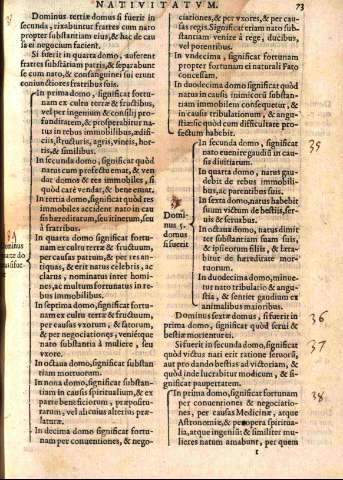 NATIVITATVM. 73
Dominus tertiæ domus si fuerit in
secunda, rixabuntur fratres cum nato
propter substantiam eius, & hac de cau
sa ei negocium facient.
Si fuerit in quarta domo, auferent
fratres substãtiam patris, & separabunt
se cum nato, & consanguinei sui erunt
coniunctiores fratribus suis.
In prima domo, significat fortu-
nam ex cultu terræ & fructibus,
vel per ingenium & consilij pro-
funditatem, & prosperabitur na-
tus in rebus immobilibus, ædifi-
cijs, structuris, agris, vineis, hor-
tis, & similibus.
In secunda domo, significat quòd
natus cum profectu emat, & ven
dat domos & res immobiles, si
quòd carè vendat, & bene emat.
In tertia domo, significat quòd res
immobiles accidet nato in cau
sis hereditarum, seu itinerum, seu
à fratribus.
In quarta domo significat fortu-
nam ex cultu terræ & fructuum,
per causas patrum, & per res an-
tiquas, & erit natus celebris, ac
clarus, nominatus inter homi-
nes, ac multum fortunatus in re-
bus immobilibus.
In septima domo, significat fortu-
nam ex cultu terræ & fructuum,
per causas vxorum, & satorum,
& per negociationes, venietque
nato substantia à muliere, seu
vxore.
In octaua domo, significat substan
tiam mortuorum.
In nona domo, significat substan-
tiam in causis spiritualium, & ex
parte beneficiorum, præposítu-
rarum, vel alicuius alterius præ-
laturæ.
In decima domo, significat fortu-
nam per conuentiones, & nego-
34
ciationes, & per vxores, & per cau-
sas regis. Significat etiam nato sub-
stantiam venire à rege, ducibus,
vel potentibus.
In vndecima, significat fortunam
propter fortunam ei naturali Fato
concessam.
In duodecima domo significat quòd
natus in causis inimicorũ substan-
tiam immobilem consequetur, &
in causis tribulationum, & angu-
stiæ: & quòd cum difficultate pro-
fectum habebit.
Domi-
nus 5.
domus
si fuerit
In secunda domo, significat
nato euenire gaudiũ in cau-
sis diuitiarum.
35
In quarta domo, natus gau-
debit de rebus immobili-
bus, ac parentibus suis.
In sexta domo, natus habebit
suum victum de bestijs, ser-
uis & seruabus.
In octaua domo, natus dimit
tet substantiam suam suis,
& ipse, suorum filiis, & læta-
bitur de hereditate mor-
tuorum.
In duodecima domo, minue-
tur nato tribulatio & angu-
stia, & sentiet gaudium ex
animalibus maioribus.
Dominus sextæ domus, si fuerit in
prima domo, significat quòd serui &
bestiæ morientur.
36
Si fuerit in secunda domo, significat
quòd victus nati erit ratione seruorũ,
aut pro dando bestias ad victoriam, &
quòd inde lucrabitur modicum, & si-
gnificat paupertatem.
37
In prima domo, significat fortunam
per conuentiones & negociatio-
nes, per causas Medicinæ, atque
Astronomiæ, & per opera spiritua-
lia, atque ingenij: & significat mu-
lieres natum amabunt, per quem
38
I